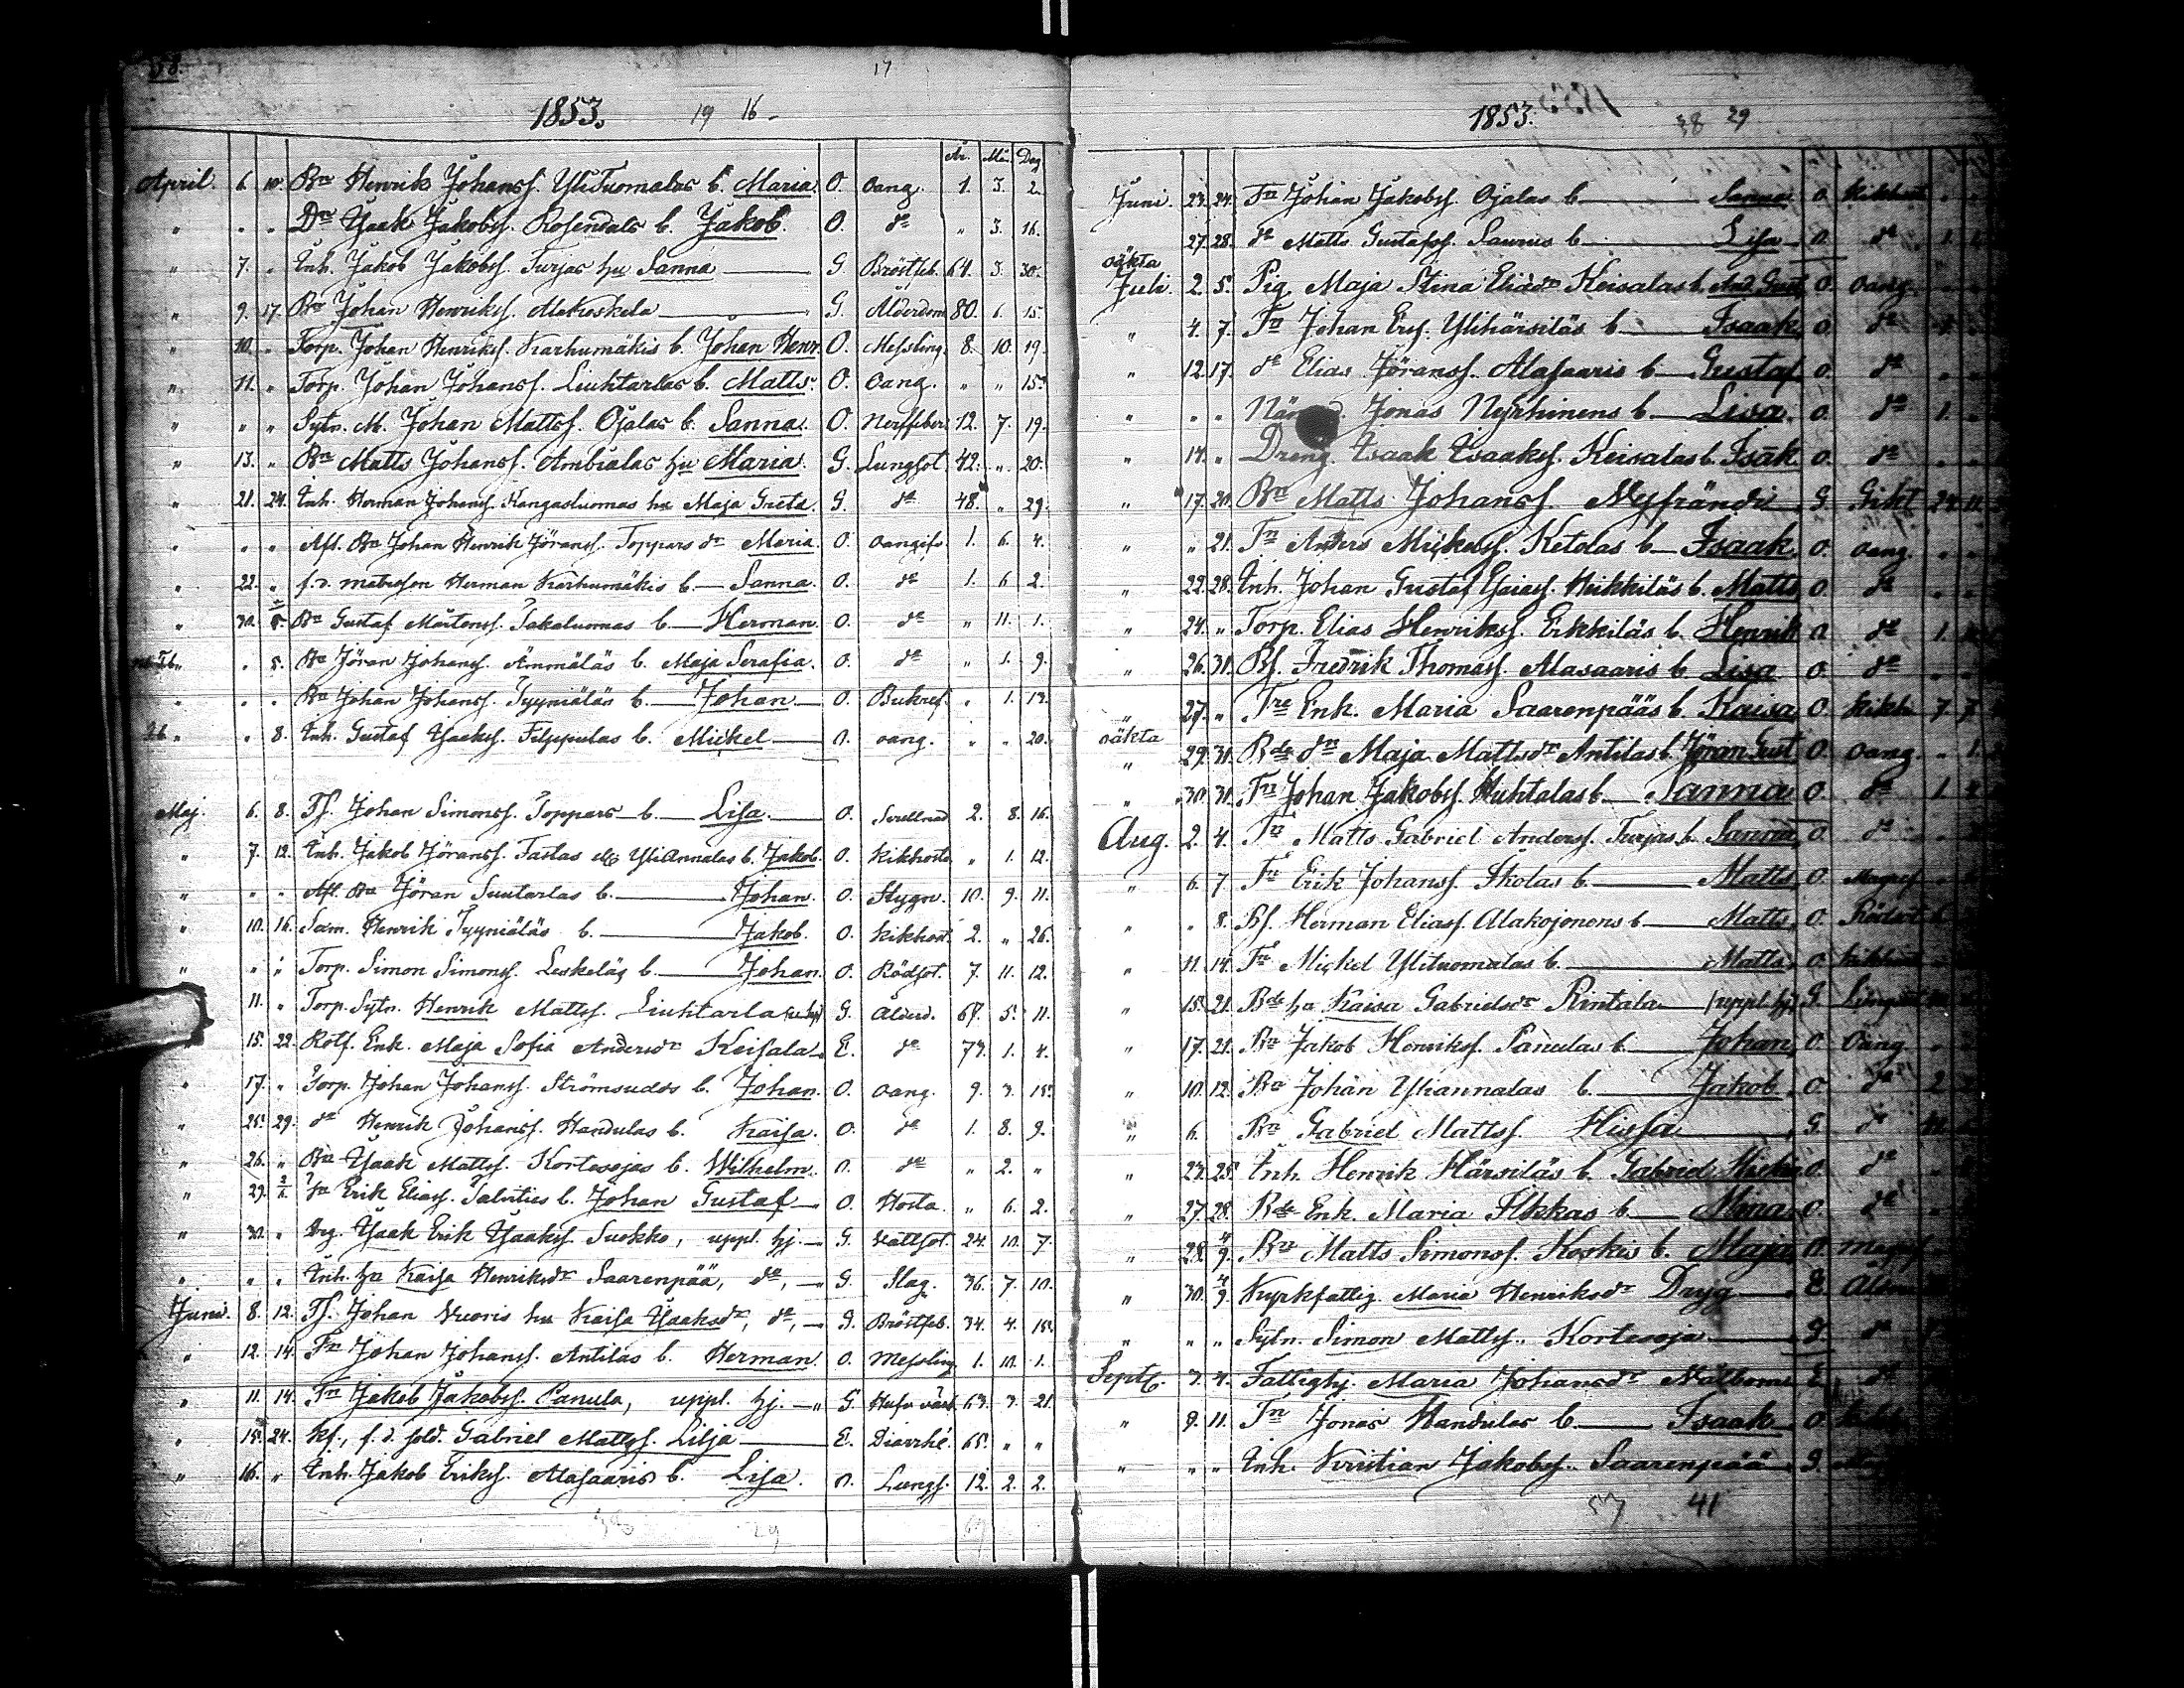 17
1853. 19 16
År. Mån. Dag
April. 6. 10. Bn Henrik Johanss. YliTuomalas b. Maria. O. oang. 1. 3. 2.
" " " Dn Isaak Jakobss. Rosendals b. Jakob. O. do " 3. 16.
" 7. " Inh. Jakob Jakobss. Turjas hu Sanna G. Bröstfeb. 64. 3. 30.
" 9. 17. Bn Johan Henrikss. Alakoskela G. Ålderdom 80. 6. 15.
" 10. " Torp. Johan Henrikss. Karhumäkis b. Johan Henr. O. Messling. 8. 10. 19.
" 11. " Torp. Johan Johanss. Liuhtarlas b. Matts. O. oang. " " 15.
" " " Sytn. M. Johan Mattss. Ojalas b. Sanna. O. Nerffeber. 12. 7. 19.
" 13. " Bn Matts Johanss. Ambialas hu Maria. G. Lungsot 42. " 20.
" 21. 24. Inh. Herman Johanss. Kangasluomas hu Maja Greta. G. do 48. " 29.
" " " Afl. Bn Johan Henrik Jöranss. Toppars dr Maria. O. oangifv. 1. 6. 4.
" 22. " f.d. Herman Karhumäkis b. Sanna. O. do 1. 6. 2.
" 30. Bn Gustaf Mårtenss. Jakaluomas b. Herman. O. do " 11. 1.
" 5. Bn Jöran Johanss. Ämmäläs b. Maja Serafia. O. do " 1. 9.
" " " Bn Johan Johanss. Tyyniäläs b. Johan O. Bukref. " 1. 13.
" 8. Inh. Gustaf Isakss. Filppulas b. Mickel O. oang. " " 20.
Maj. 6. 8. Tf. Johan Simonss. Toppars b. Lisa. O. 2. 8. 16.
" 7. 12. Inh. Jakob Jöranss. Tastas Yliannalas b. Jakob. O. Kikhosta " 1. 12.
" " " Afl. Bn Jöran Suutarlas b. Johan. O. Stygn. 10. 9. 11.
" 10. 16. Henrik Tyyniäläs b. Jakob. O. kikhost. 2. " 26.
" " " Torp. Simon Simonss. Leskeläs b. Johan. O. Rödsot. 7. 11. 12.
11. " Torp. Sytn. Henrik Mattss. Liuhtarla G. Ålderd. 67. 5. 11.
15. 22. Rotf. Enk. Maja Sofia Andersdr Keisala E. do 73. 1. 4.
" 17. " Torp. Johan Johanss. Strömsudds b. Johan. O. oang. 9. 3. 15.
" 25. 29. do Henrik Johanss. Handulas b. Kaisa. O. do 1. 8. 9.
" 26. " Bn Isaak Mattss. Kortesojas b. Wilhelm. O. do " 2. "
" 29. Erik Eliass. b. Johan Gustaf O. Hosta. " 6. 2.
" 30. " Drg. Isaak Erik Isaakss. Suokko, uppl. hj. G. Vattsot. 24. 10. 7.
" " " Inh. hu Kaisa Henriksdr Saarenpää, do, G. Slag. 36. 7. 10.
Juni. 8. 12. Tf. Johan Vuoris hu Kaisa Isaaksdr, do, G. Bröstfeb. 34. 4. 15.
" 12. 14. Fn Johan Johanss. Antilas b. Herman. O. Messling. 1. 10. 1.
" 11. 14. Fn Jakob Jakobss. Panula, uppl. hj. G. 63. 3. 21.
" 15. 24. Kf., f.d. sold. Gabriel Mattss. Lilja E. Diarrhé. 65. " "
" 16. " Inh. Jakob Erikss. Alasaaris b. Lisa. O. Lungs. 12. 2. 2.
1853. 38 29
Juni. 23. 24. Fn Johan Jakobss. Ojalas b. Sanna O. Kikhost
27. 28. do Matts Gustafss. Saunis b. Lisa O. do 1.
oäkta
Juli. 2. 5. Pig. Maja Stina Eliædr Keisalas b. And. Gust. O. oang.
" 4. 7. Fn Johan Ers. Ylihärsiläs b. Isaak O. do
" 12. 17. do Elias Jöranss. Alasaaris b. Gustaf O. do
" " " Jonas Nyrhinens b. Lisa. O. do 1.
" 14. " Dreng. Isaak Isaakss. Keisalas b. Isak. O. do
" 17. 20. Bn Matts Johanss. Myfrändi G. Gikt 24. 11.
" " 21. Fn Anders Mickelss. Ketolas b. Isaak O. oang.
" 22. 28. Inh. Johan Gustaf Esaiass. Heikkiläs b. Matts O. do
" 24. " Torp. Elias Henrikss. Erkkiläs b. Henrik O. do 1.
" 26. 31. Bf. Fredrik Thomass. Alasaaris b. Lisa O. do
" 27. " Enk. Maria Saarenpääs b. Kaisa O. kikh. 7 7
oäkta
" 29. 31. Bde dr Maja Mattsdr Antilas b. Jöran Gust O. oang " 1.
" 30. 31. Fn Johan Jakobss. Huhtalas b. Sanna O. do 1.
Aug. 2. 4. Fn Matts Gabriel Anderss. Turjas b. Sanna O. do
" 6. 7 Fn Erik Johanss. Skolas b. Matts O.
" " 8. Bf. Herman Eliass. Alakojonens b. Matts O. Rödsot
" 11. 14. Fn Mickel Ylituomalas b. Matts O.
" 15. 21. Bde hu Kaisa Gabrielsdr Rintala (uppl. hj.) G.
" 17. 21. Bn Jakob Henrikss. Panulas b. Johan O. Oang
" 10. 12. Bn Johan Yliannalas b. Jakob O. do 2
" 6. Bn Gabriel Mattss. Hissa G. do
" 23. 25. Inh. Henrik Härsiläs b. Gabriel O. do
" 27. 28. Bde Enk. Maria Ilkkas b. Mina O. do
" 28. 4/9. Bn Matts Simonss. Koskis b. Maja O.
" 30. 4/9. Kyrkfattig Maria Henriksdr Dryg E.
" " " Sytn. Simon Mattss. Kortesoja G. do
Septb. 3. 4. Fattighj. Maria Johansdr E. do
" 9. 11. Fn Jonas Handulas b. Isaak O.
" " " Inh. Kristian Jakobss. Saarenpää G.
57 41